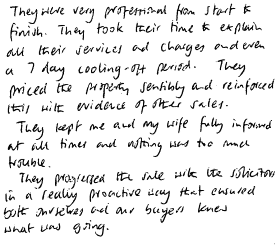 They were very professional from start to
finish. They took their time to explain
all their services and charges and even
a 7 day cooling-off period. They
priced the property sensibly and reinforced
this with evidence of other sales.
They kept me and my wife fully informed
at all times and nothing was too much
trouble.
They progressed the sale with the solicitors
in a really proactive way that ensured
both ourselves and our buyers knew
what was going.